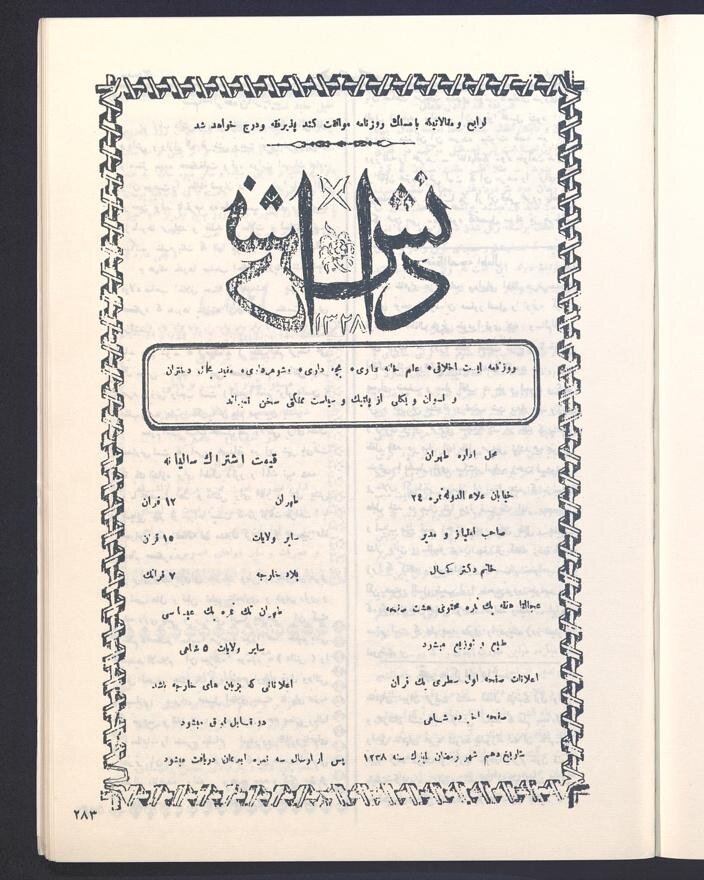 لوایح و مقالاتیکه با مسلک روزنامه موافقت کند پذیرفته و درج خواهد شد
دانش
۱۳۲۸
روزنامه ایست اخلاقی علم خانه داری بچه داری شوهرداری مفید بحال دختران
و نسوان و بکلی از پلتیک و سیاست مملکتی سخن نمیراند
محل اداره طهران
خیابان علاء الدوله نمره ۲٤
صاحب امتیاز و مدیر
خانم دکتر کحال
عجالتا هفته یک نمره محتوی هشت صفحه
طبع و توزیع میشود
اعلانات صفحه اول سطری یک قران
صفحه آخر ده شاهی
بتاریخ دهم شهر رمضان المبارک سنه ۱۳۳۸
قیمت اشتراک سالیانه
طهران ۱۲ قران
سایر ولایات ۱۵ قران
بلاد خارجه ۷ فرانک
طهران تک نمره یک عباسی
سایر ولایات ۵ شاهی
اعلاناتی که بزبان های خارجه باشد
دو مقابل فوق میشود
پس از ارسال سه نمره آبونمان دریافت میشود
۲۸۳